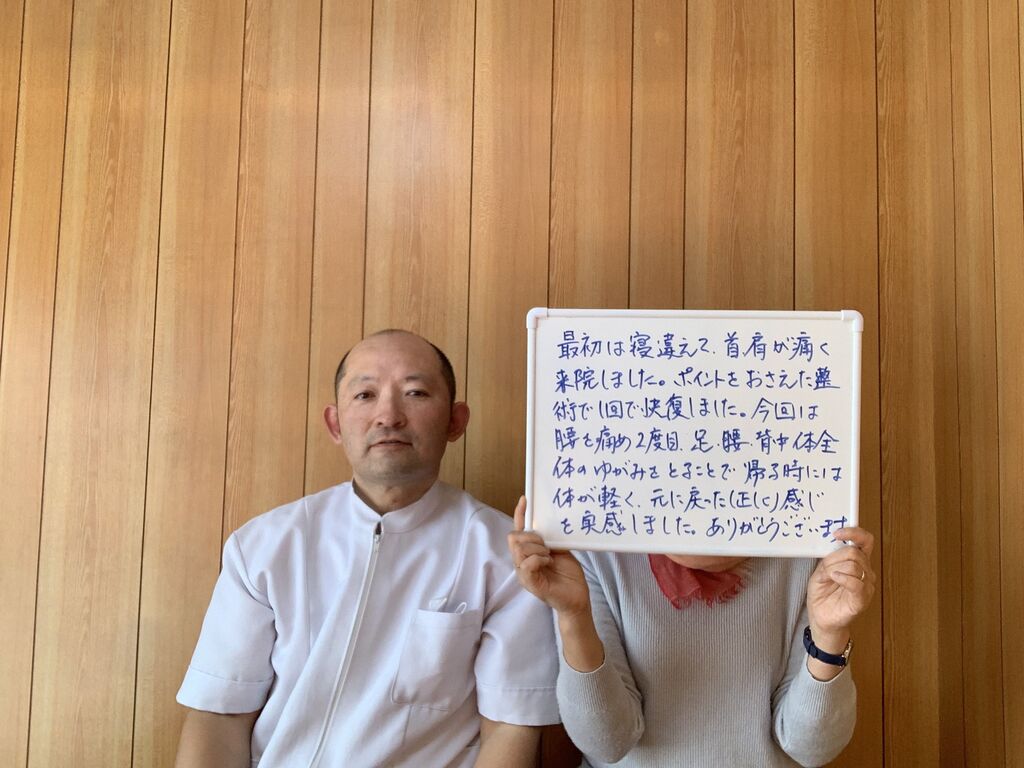 最初は寝違えて、首、肩が痛く
来院しました。ポイントをおさえた整
術で1回で快復しました。今回は
腰を痛め2度目、足、腰、背中体全
体のゆがみをとることで帰る時には
体が軽く、元に戻った(正しく)感じ
を実感しました。ありがとうございます